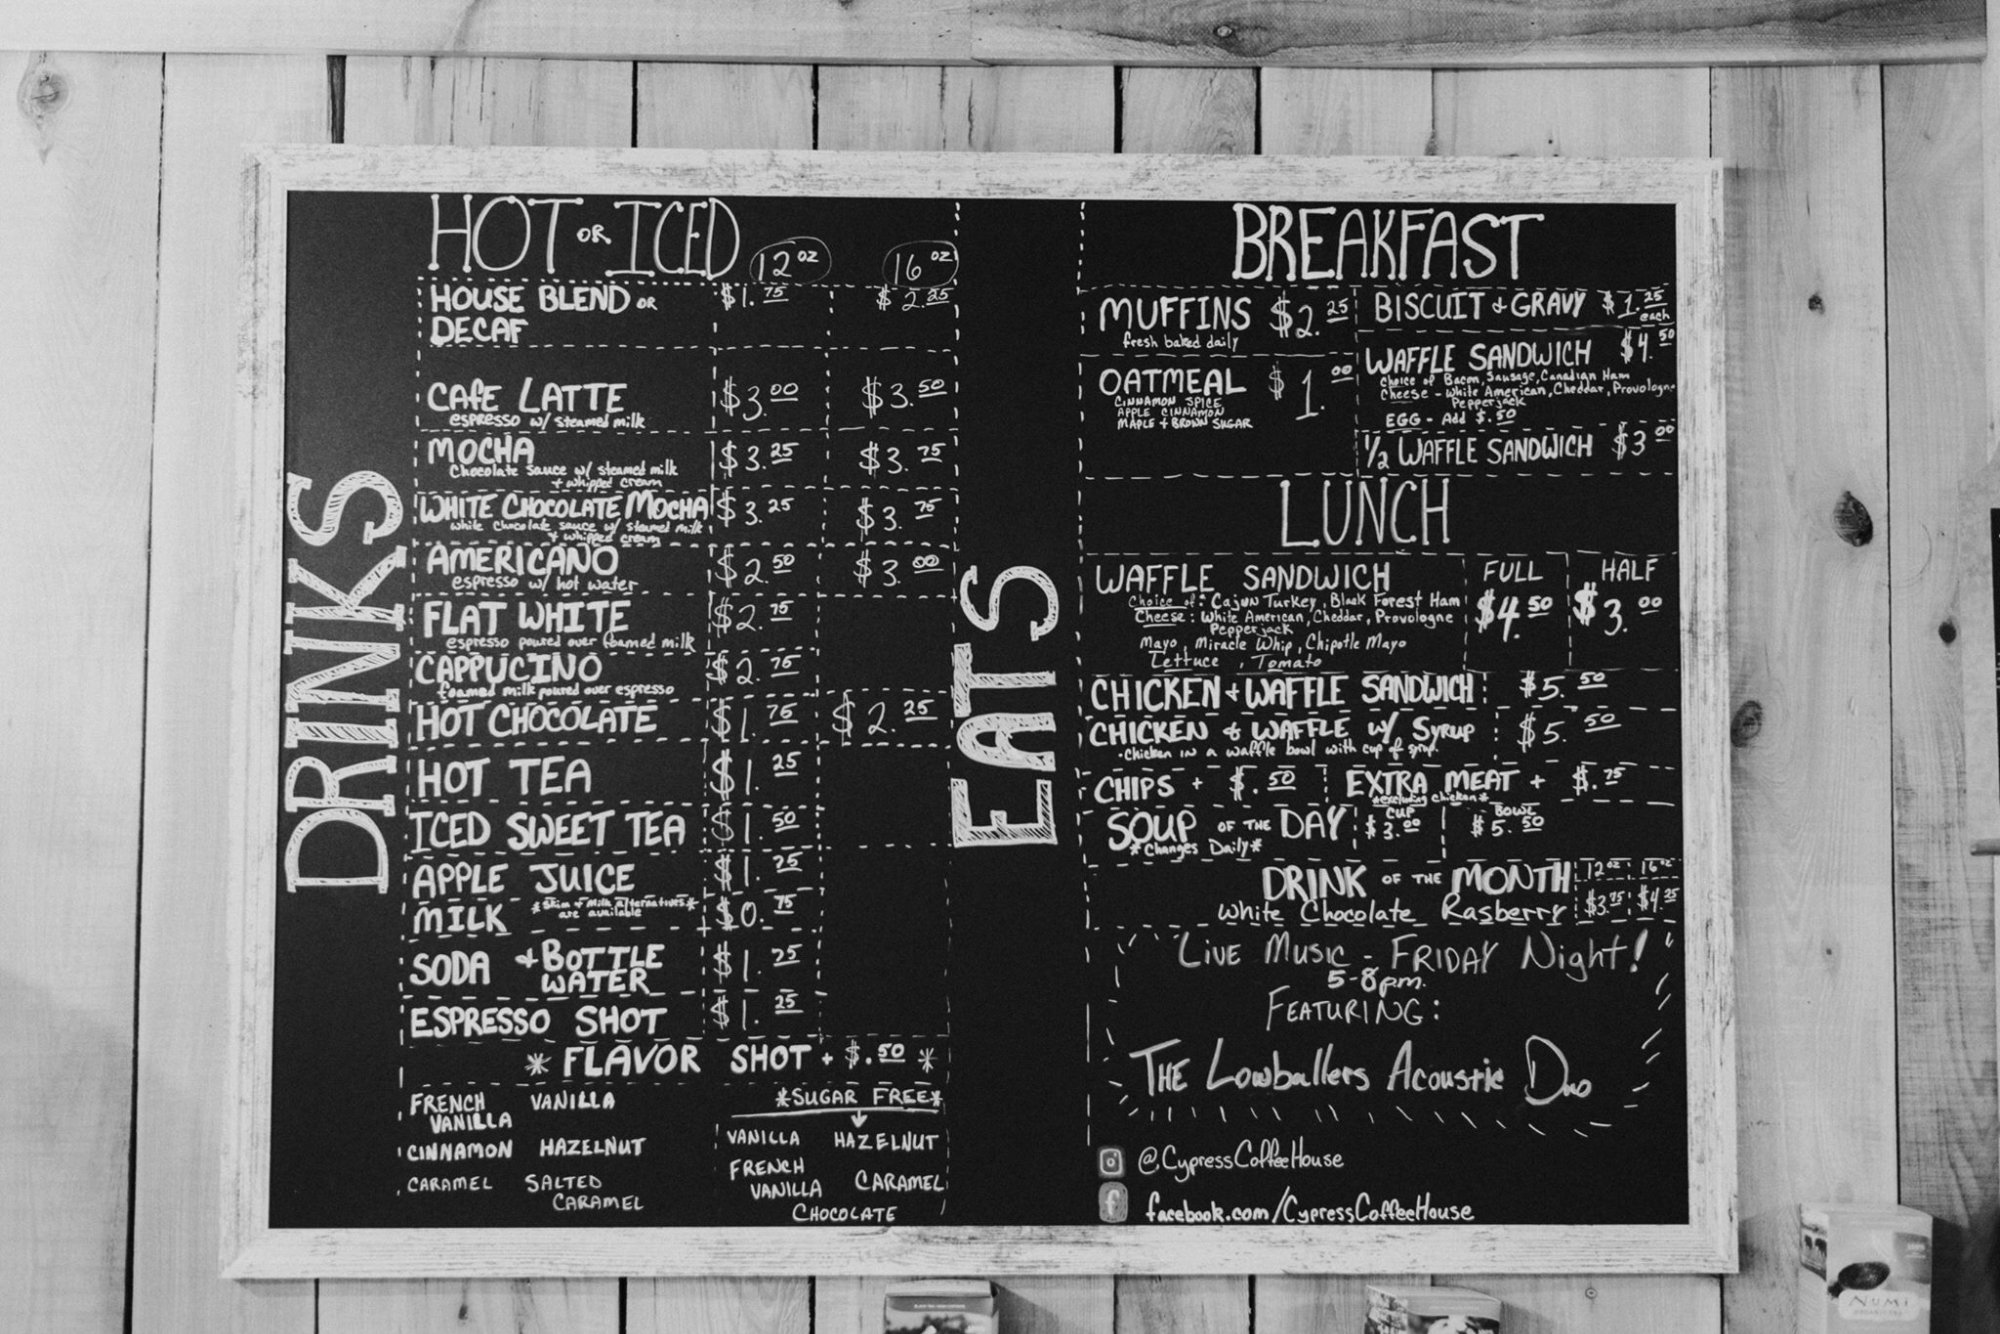 DRINKS
HOT OR ICED 12 OZ 16 OZ
HOUSE BLEND OR $1.75 $2.25
DECAF
CAFE LATTE $3.00 $3.50
espresso w/ steamed milk
MOCHA $3.25 $3.75
Chocolate sauce w/ steamed milk
+ whipped cream
WHITE CHOCOLATE MOCHA $3.25 $3.75
White Chocolate sauce w/ steamed milk
+ whipped cream
AMERICANO $2.50 $3.00
espresso w/ hot water
FLAT WHITE $2.75
espresso poured over foamed milk
CAPPUCINO $2.75
foamed milk poured over espresso
HOT CHOCOLATE $1.75 $2.25
HOT TEA $1.25
ICED SWEET TEA $1.50
APPLE JUICE $1.25
MILK *Skim + Milk alternatives* $0.75
are available
SODA + BOTTLE $1.25
WATER
ESPRESSO SHOT $1.25
* FLAVOR SHOT + $.50 *
FRENCH VANILLA
VANILLA
CINNAMON HAZELNUT
CARAMEL SALTED
CARAMEL
*SUGAR FREE*
VANILLA HAZELNUT
FRENCH
VANILLA CARAMEL
CHOCOLATE
EATS
BREAKFAST
MUFFINS $2.25
fresh baked daily
OATMEAL $1.00
CINNAMON SPICE
APPLE CINNAMON
MAPLE + BROWN SUGAR
BISCUIT + GRAVY $1.25 each
WAFFLE SANDWICH $4.50
Choice of Bacon, Sausage, Canadian Ham
Cheese - White American, Cheddar, Provologne
Pepperjack
EGG - Add $.50
1/2 WAFFLE SANDWICH $3.00
LUNCH
WAFFLE SANDWICH FULL HALF
Choice of: Cajun Turkey, Black Forest Ham $4.50 $3.00
Cheese: White American, Cheddar, Provologne
Pepperjack
Mayo, Miracle Whip, Chipotle Mayo
Lettuce, Tomato
CHICKEN + WAFFLE SANDWICH: $5.50
CHICKEN & WAFFLE W/ SYRUP: $5.50
·Chicken in a waffle bowl with cup of syrup.
CHIPS + $.50 EXTRA MEAT + $.75
*excluding chicken*
SOUP OF THE DAY CUP $3.00 BOWL $5.50
*Changes Daily*
DRINK OF THE MONTH 12oz 16oz
White Chocolate Rasberry $3.75 $4.25
LIVE MUSIC - FRIDAY Night!
5-8pm.
FEATURING:
THE Lowballers Acoustic Duo
@CypressCoffeeHouse
facebook.com/CypressCoffeeHouse
NUMI